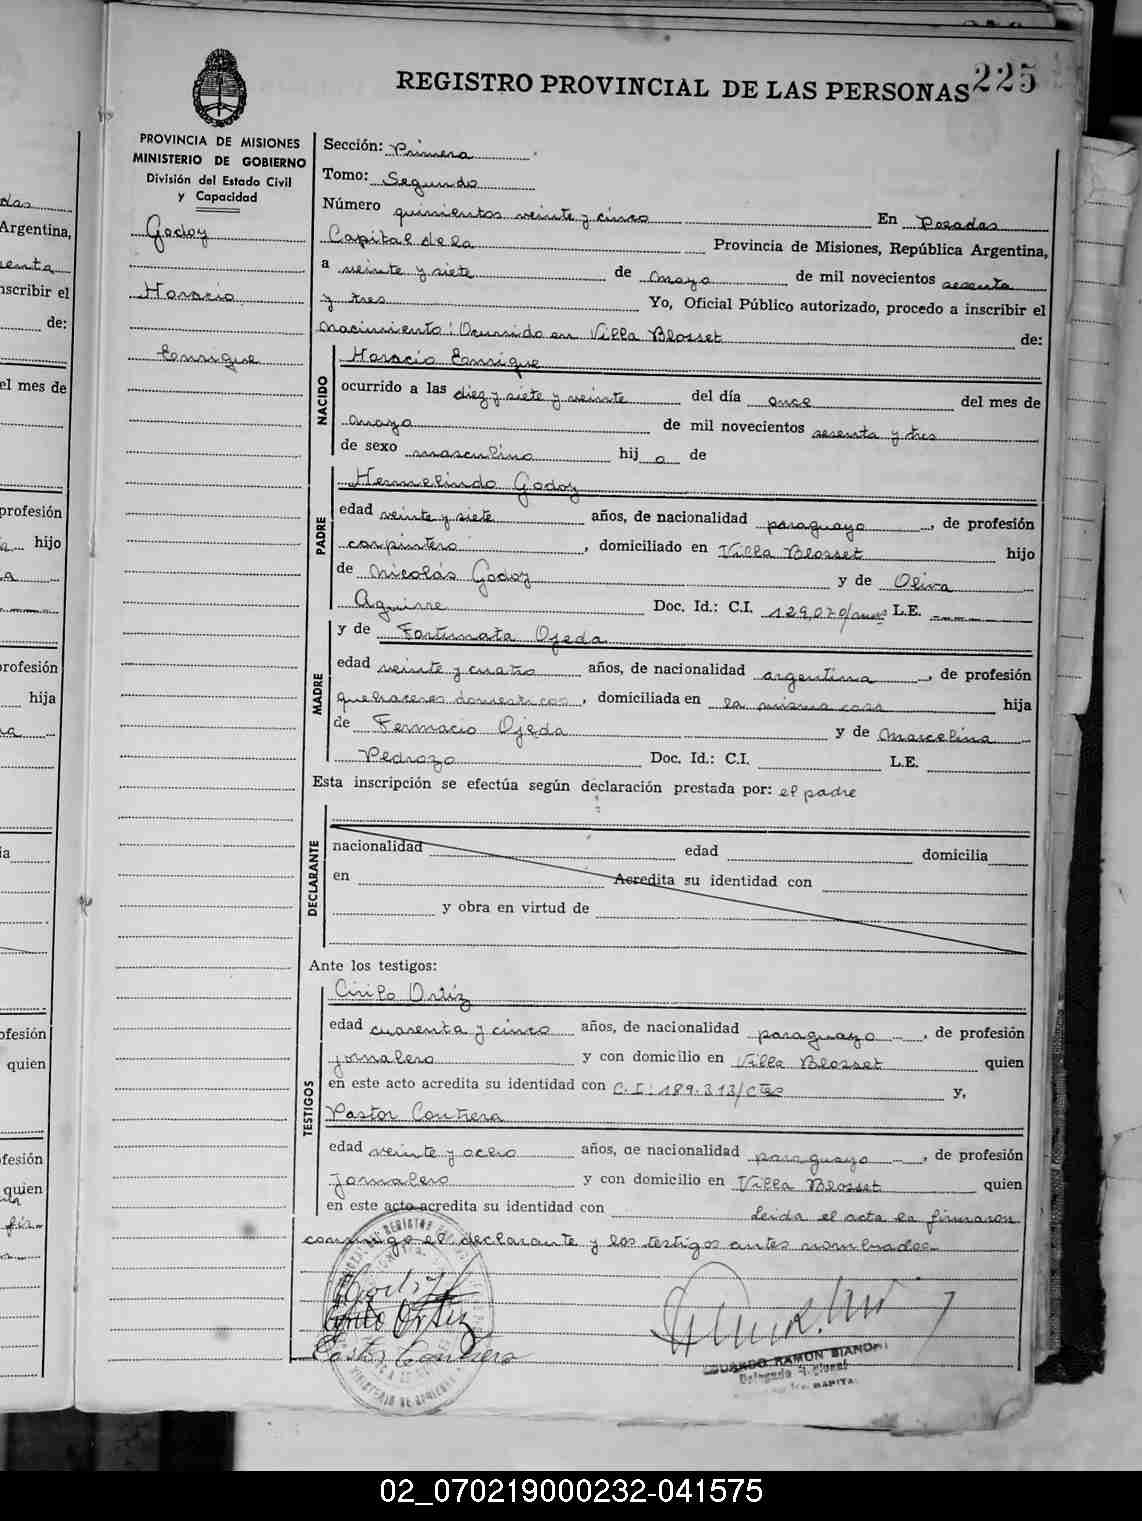 225
REGISTRO PROVINCIAL DE LAS PERSONAS
PROVINCIA DE MISIONES
MINISTERIO DE GOBIERNO
División del Estado Civil
y Capacidad
Godoy
Horacio
Enrique
Sección: Primera
Tomo: Segundo
Número quinientos veinte y cinco En Posadas
Capital de la Provincia de Misiones, República Argentina,
a veinte y siete de mayo de mil novecientos sesenta
y tres Yo, Oficial Público autorizado, procedo a inscribir el
nacimiento: Ocurrido en Villa Blosset de:
NACIDO
Horacio Enrique
ocurrido a las diez y siete y veinte del día once del mes de
mayo de mil novecientos sesenta y tres
de sexo masculino hij o de
PADRE
Hermelindo Godoy
edad veinte y siete años, de nacionalidad paraguayo, de profesión
carpintero, domiciliado en Villa Blosset hijo
de Nicolás Godoy y de Oliva
Aguirre Doc. Id.: C.I. 129,070/ L.E.
MADRE
y de Fortunata Ojeda
edad veinte y cuatro años, de nacionalidad argentina, de profesión
quehaceres domesticos, domiciliada en la misma casa hija
de Fermacio Ojeda y de Marcelina
Pedrozo Doc. Id.: C.I. L.E.
Esta inscripción se efectúa según declaración prestada por: el padre
DECLARANTE
nacionalidad edad domicilia
en Acredita su identidad con
y obra en virtud de
Ante los testigos:
TESTIGOS
Cirilo Ortíz
edad cuarenta y cinco años, de nacionalidad paraguayo, de profesión
jornalero y con domicilio en Villa Blosset quien
en este acto acredita su identidad con C.I: 189.313/Ctes y,
Pastor Contrera
edad veinte y ocho años, de nacionalidad paraguayo, de profesión
Jornalero y con domicilio en Villa Blosset quien
en este acto acredita su identidad con Leida el acta la firmaron
conmigo el declarante y los testigos antes nombrados
Cirilo Ortiz
Pastor Contrera
EDUARDO RAMON BIANCHI
Delegado Regional
das
Argentina,
enta
nscribir el
de:
el mes de
profesión
hijo
rofesión
hija
ia
ofesión
quien
fesión
quien
02_070219000232-041575